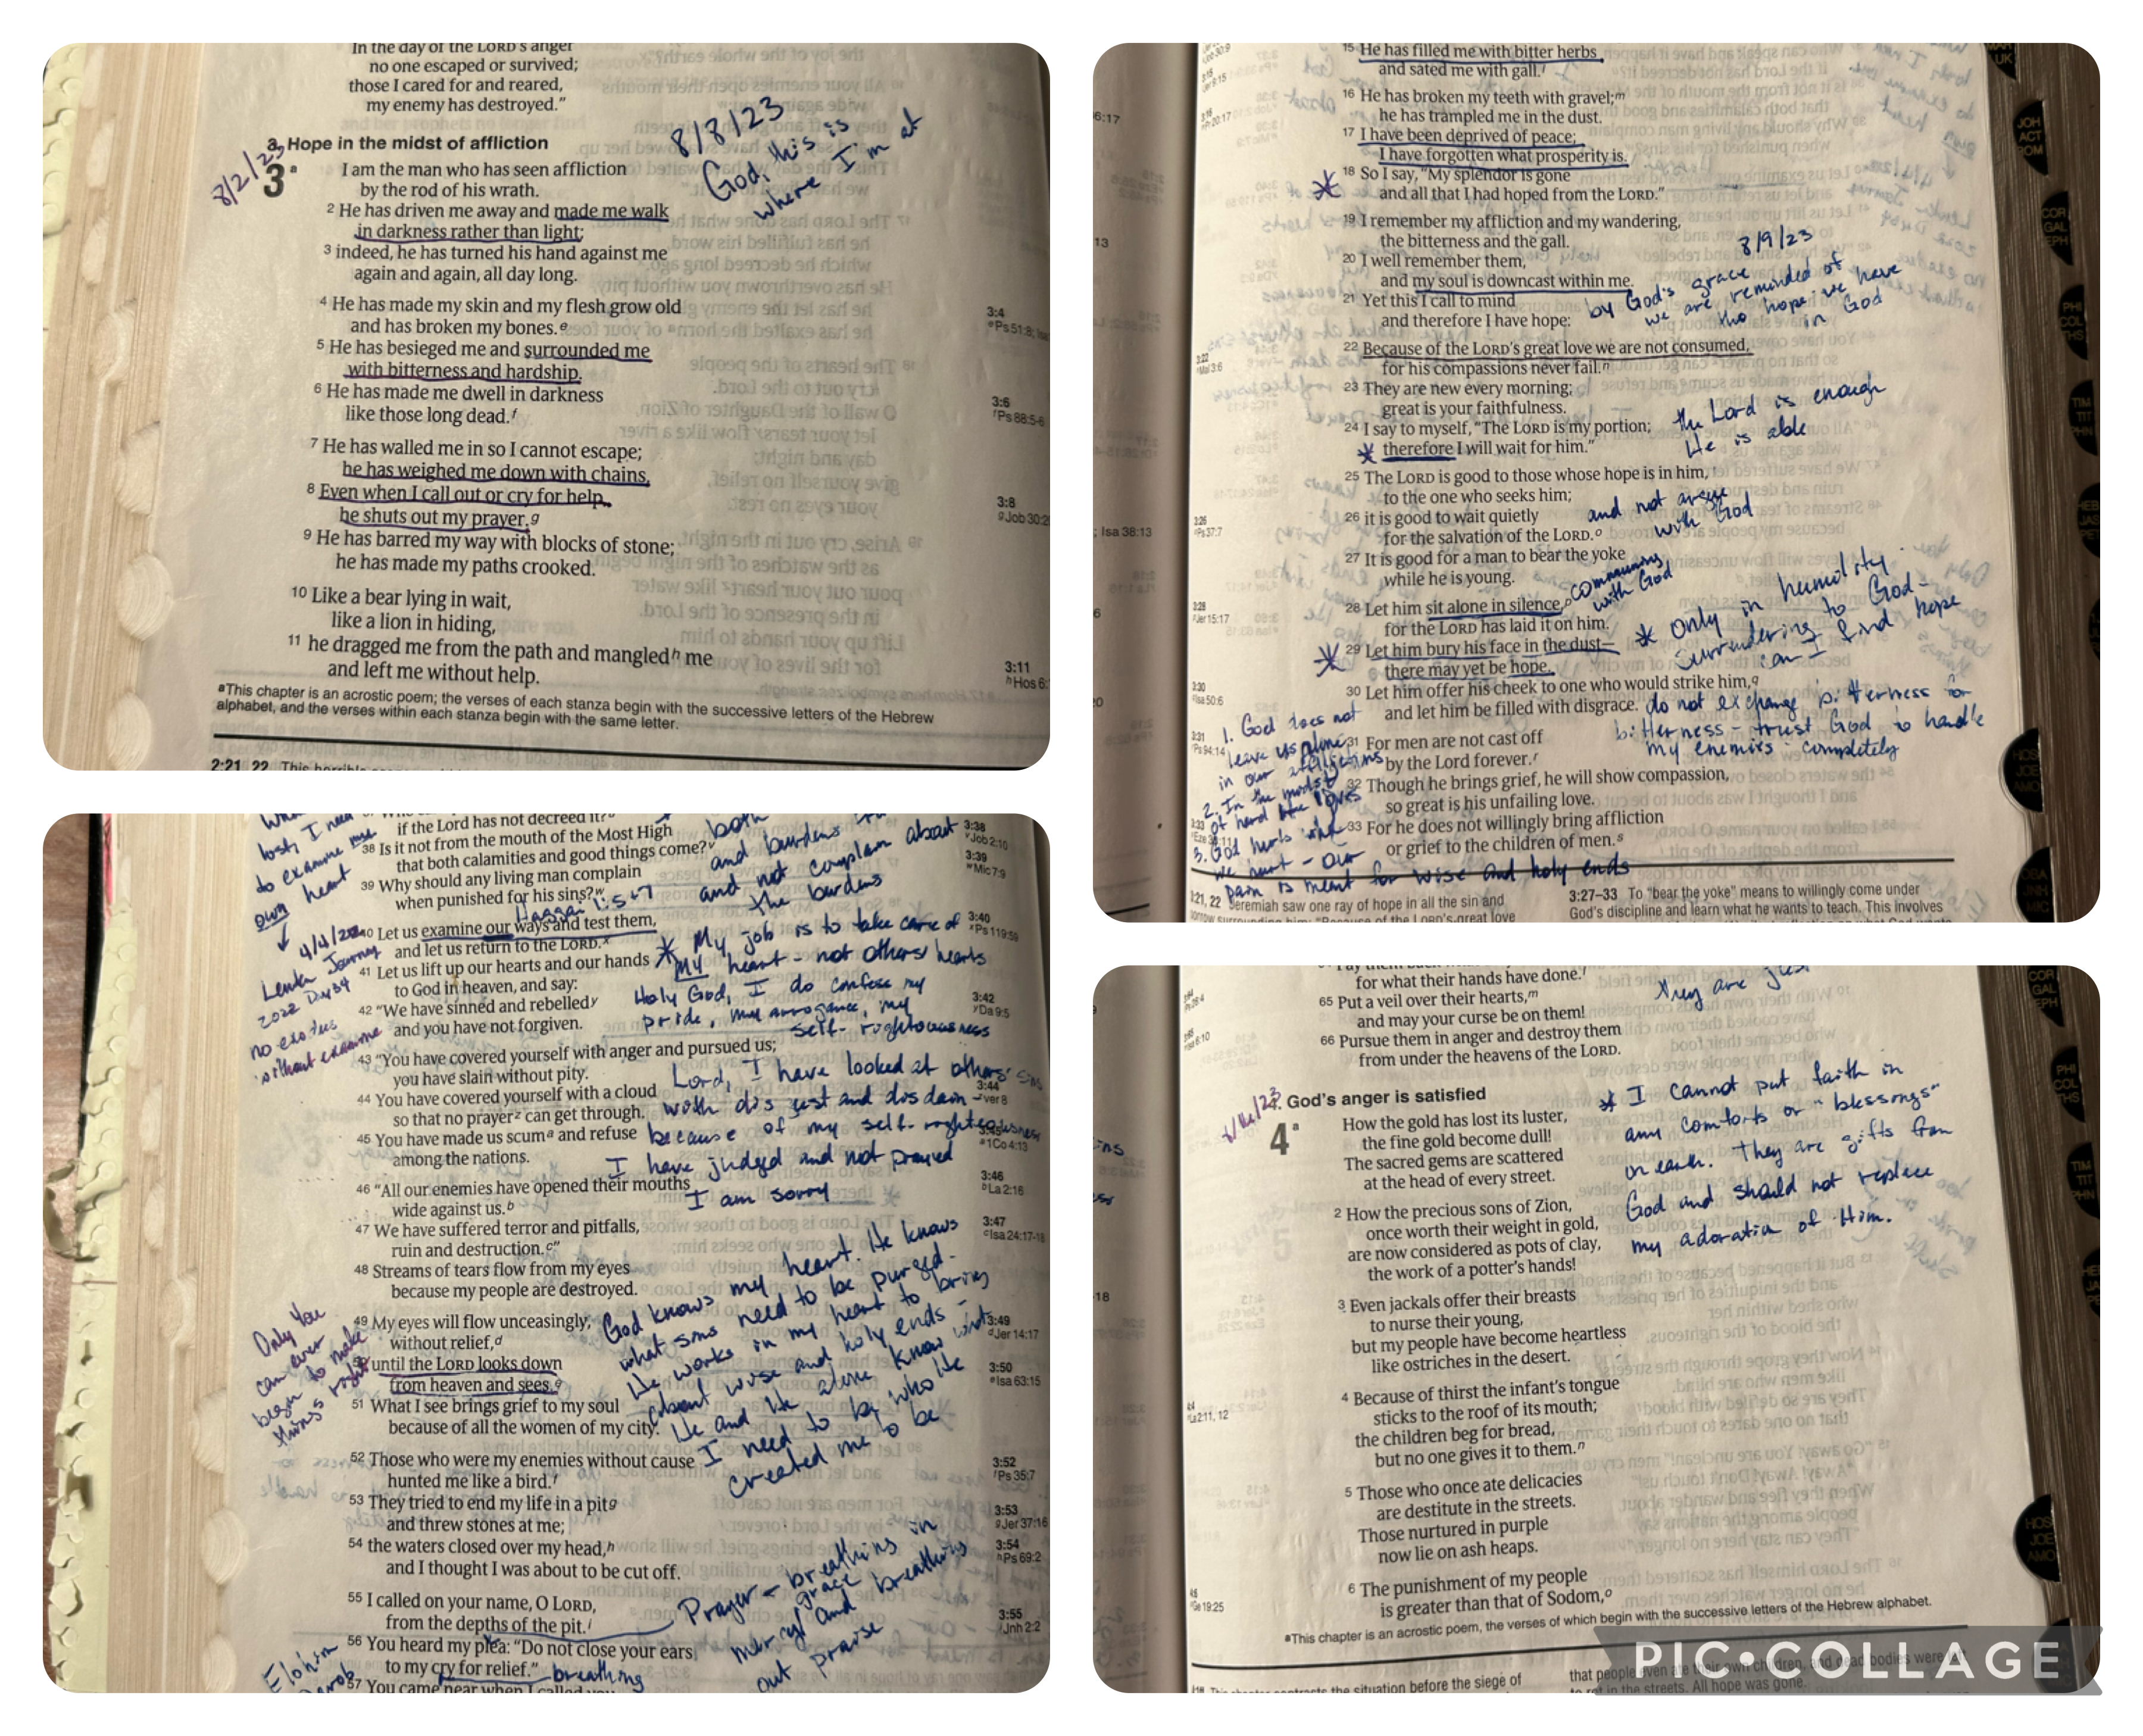 In the day of the LORD's anger
no one escaped or survived;
those I cared for and reared,
my enemy has destroyed."
8/2/23
Hope in the midst of affliction
8/8/23
God, this is
where I'm at
3 I am the man who has seen affliction
by the rod of his wrath.
2 He has driven me away and made me walk
in darkness rather than light;
3 indeed, he has turned his hand against me
again and again, all day long.
4 He has made my skin and my flesh grow old
and has broken my bones.e
5 He has besieged me and surrounded me
with bitterness and hardship.
6 He has made me dwell in darkness
like those long dead.f
7 He has walled me in so I cannot escape;
he has weighed me down with chains.
8 Even when I call out or cry for help,
he shuts out my prayer.g
9 He has barred my way with blocks of stone;
he has made my paths crooked.
10 Like a bear lying in wait,
like a lion in hiding,
11 he dragged me from the path and mangledh me
and left me without help.
3:4
Ps 51:8;
3:6
Ps 88:5-6
3:8
Job 30:2
3:11
Hos 6:
aThis chapter is an acrostic poem; the verses of each stanza begin with the successive letters of the Hebrew
alphabet, and the verses within each stanza begin with the same letter.
2:21, 22
15 He has filled me with bitter herbs
and sated me with gall.l
16 He has broken my teeth with gravel;m
he has trampled me in the dust.
17 I have been deprived of peace;
I have forgotten what prosperity is.
18 So I say, "My splendor is gone
and all that I had hoped from the LORD."
19 I remember my affliction and my wandering,
the bitterness and the gall.
20 I well remember them,
and my soul is downcast within me.
21 Yet this I call to mind
and therefore I have hope:
8/9/23
by God's grace
we are reminded of
the hope we have
in God
22 Because of the LORD's great love we are not consumed,
for his compassions never fail.n
23 They are new every morning;
great is your faithfulness.
24 I say to myself, "The LORD is my portion;
therefore I will wait for him."
the Lord is enough
He is able
25 The LORD is good to those whose hope is in him,
to the one who seeks him;
26 it is good to wait quietly
for the salvation of the LORD.o
and not argue
with God
27 It is good for a man to bear the yoke
while he is young.
28 Let him sit alone in silence,
for the LORD has laid it on him.
communing
with God
29 Let him bury his face in the dust—
there may yet be hope.
* only in humility
surrendering to God -
can I find hope
30 Let him offer his cheek to one who would strike him,q
and let him be filled with disgrace.
do not exchange bitterness for
bitterness - trust God to handle
my enemies - completely
31 For men are not cast off
by the Lord forever.r
32 Though he brings grief, he will show compassion,
so great is his unfailing love.
33 For he does not willingly bring affliction
or grief to the children of men.s
1. God does not
leave us alone
in our afflictions
2. In the midst
of hard He loves
3. God hurts when
we hurt - our
pain is meant for wise and holy ends
3:21, 22 Jeremiah saw one ray of hope in all the sin and
3:27–33 To "bear the yoke" means to willingly come under
God's discipline and learn what he wants to teach. This involves
JOH
ACT
ROM
COR
GAL
EPH
PHI
COL
THS
TIM
TIT
PHN
HEB
JAS
PET
HOS
JOE
AMO
OBA
JNH
MIC
if the Lord has not decreed it?
38 Is it not from the mouth of the Most High
that both calamities and good things come?v
39 Why should any living man complain
when punished for his sins?w
both
and burdens
and not complain about
the burdens
lost, I need
to examine my
own heart
Haggai 1:5-7
40 Let us examine our ways and test them,
and let us return to the LORD.x
4/4/22
Lenten Journey
2022 Day 34
no exodus
without examine
41 Let us lift up our hearts and our hands
to God in heaven, and say:
42 "We have sinned and rebelledy
and you have not forgiven.
* My job is to take care of
my heart - not others' hearts
Holy God, I do confess my
pride, my arrogance, my
self-rightousness
43 "You have covered yourself with anger and pursued us;
you have slain without pity.
44 You have covered yourself with a cloud
so that no prayerz can get through.
45 You have made us scuma and refuse
among the nations.
Lord, I have looked at others' sins
with disgust and disdain -
because of my self-rightousness
I have judged and not prayed
I am sorry
46 "All our enemies have opened their mouths
wide against us.b
47 We have suffered terror and pitfalls,
ruin and destruction.c"
48 Streams of tears flow from my eyes
because my people are destroyed.
49 My eyes will flow unceasingly,
without relief,d
50 until the LORD looks down
from heaven and sees.e
51 What I see brings grief to my soul
because of all the women of my city.
Only You
can ever
begin to make
things right
God knows my heart. He knows
what sins need to be purged.
He works in my heart to bring
about wise and holy ends -
He and He alone know what
I need to be who He
created me to be
52 Those who were my enemies without cause
hunted me like a bird.f
53 They tried to end my life in a pitg
and threw stones at me;
54 the waters closed over my head,h
and I thought I was about to be cut off.
55 I called on your name, O LORD,
from the depths of the pit.i
56 You heard my plea: "Do not close your ears
to my cry for relief."
57 You came near when I called
Prayer - breathing in
grace
mercy and breathing
out praise
breathing
Elohim
3:38
Job 2:10
3:39
Mic 7:9
3:40
Ps 119:59
3:42
Da 9:5
3:44
ver 8
1Co 4:13
3:46
La 2:16
3:47
Isa 24:17-18
3:49
Jer 14:17
3:50
Isa 63:15
3:52
Ps 35:7
3:53
Jer 37:16
3:54
Ps 69:2
3:55
Jnh 2:2
for what their hands have done.l
65 Put a veil over their hearts,m
and may your curse be on them!
66 Pursue them in anger and destroy them
from under the heavens of the LORD.
they are just
God's anger is satisfied
4 How the gold has lost its luster,
the fine gold become dull!
The sacred gems are scattered
at the head of every street.
2 How the precious sons of Zion,
once worth their weight in gold,
are now considered as pots of clay,
the work of a potter's hands!
* I cannot put faith in
any comforts or "blessings"
on earth. They are gifts from
God and should not replace
my adoration of Him.
3 Even jackals offer their breasts
to nurse their young,
but my people have become heartless
like ostriches in the desert.
4 Because of thirst the infant's tongue
sticks to the roof of its mouth;
the children beg for bread,
but no one gives it to them.n
5 Those who once ate delicacies
are destitute in the streets.
Those nurtured in purple
now lie on ash heaps.
6 The punishment of my people
is greater than that of Sodom,o
aThis chapter is an acrostic poem, the verses of which begin with the successive letters of the Hebrew alphabet.
the situation before the siege of
that people even ate their own children, and dead bodies were left
to rot in the streets. All hope was gone.
PIC•COLLAGE